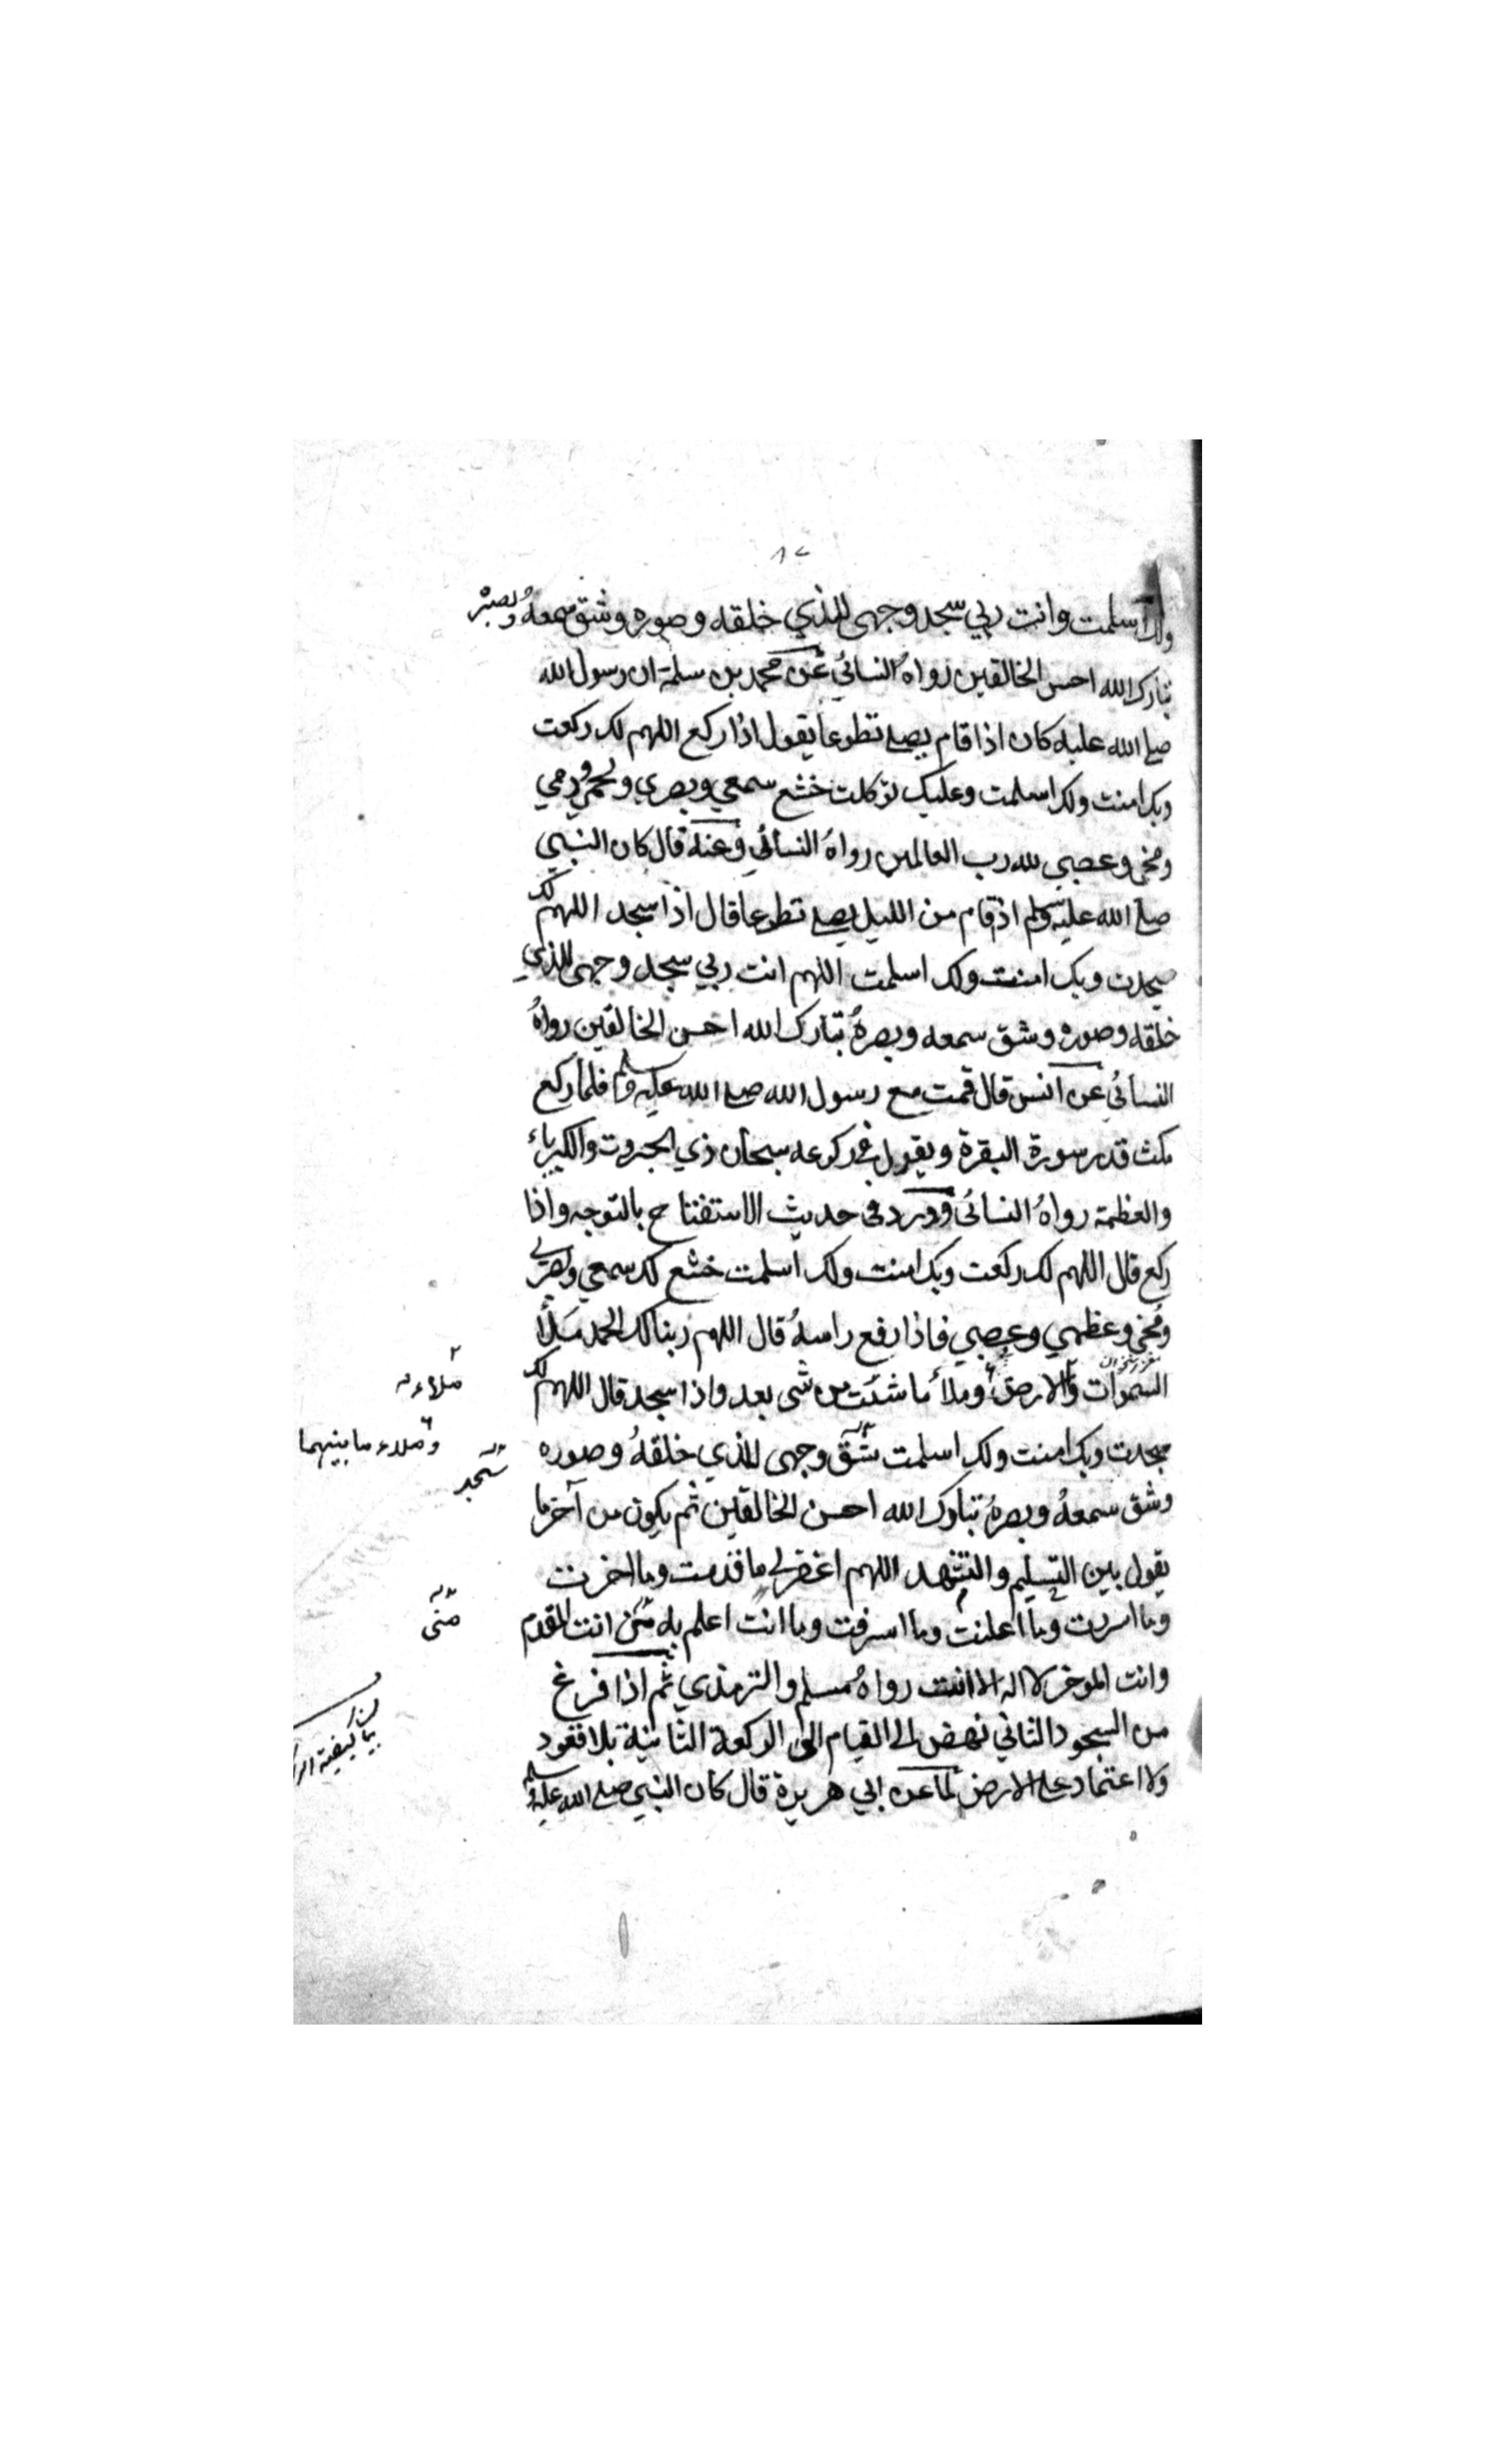 ولك اسلمت وانت ربي سجد وجهى للذي خلقه وصوره وشق سمعهُ وبصره
تبارك الله احسن الخالقين رواهُ النسائي عن محمد بن سلمة ان رسول الله
صلى الله عليه كان اذا قام يصلى تطوعا يقول اذا ركع اللهم لك ركعت
وبك امنت ولك اسلمت وعليك توكلت خشع سمعي وبصري ولحمي ودمي
ومخي وعصبي لله رب العالمين رواهُ النسائي وعنه قال كان النبي
صلى الله عليه وسلم اذا قام من الليل يصلى تطوعا قال اذا سجد اللهم لك
سجدت وبك امنت ولك اسلمت اللهم انت ربي سجد وجهى للذي
خلقه وصوره وشق سمعه وبصرهُ تبارك الله احسن الخالقين رواهُ
النسائي عن انس قال قمت مع رسول الله صلى الله عليه وسلم فلما ركع
مكث قدر سورة البقرة ويقول فى ركوعه سبحان ذي الجبروت والكبرياء
والعظمة رواهُ النسائى وورد فى حديث الاستفتاح بالتوجه واذا
ركع قال اللهم لك ركعت وبك امنت ولك اسلمت خشع لك سمعي وبصري
ومُخي وعظمي وعصبي فاذا رفع راسهُ قال اللهم ربنا لك الحمد مَلأَ
السموات والارض وملأ ما شئت من شى بعد واذا سجد قال اللهم لك
ملاء
سجدت وبك امنت ولك اسلمت شق وجهى للذي خلقهُ وصوره
وملاء ما بينهما
سجد
وشق سمعهُ وبصرهُ تبارك الله احسن الخالقين ثم يكون من آخر ما
يقول بين التسليم والتشهد اللهم اغفر لى ما قدمت وما اخرت
وما اسررت وما اعلنت وما اسرفت وما انت اعلم به منى انت المقدم
منى
وانت الموخر لا اله الا انت رواهُ مسلم والترمذي ثم اذا فرغ
من السجود الثاني نهض الى القيام الى الركعة الثانية بلا قعود
بيان كيفية
ولا اعتماد على الارض لما عن ابي هريرة قال كان النبي صلى الله عليه وسلم